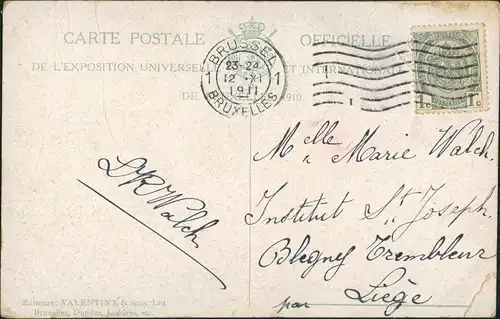 CARTE POSTALE OFFICIELLE
DE L'EXPOSITION UNIVERSELLE ET INTERNATIONALE
DE 1910.
BRUSSEL
23-24
1 12 XI 1
1911
BRUXELLES
1c 1c
Mlle Marie Walch.
Institut St. Joseph.
Blegney Trembleur
par Liège
Walch
Editeurs: VALENTINE & Sons, Ltd.
Bruxelles, Dundee, Londres, etc.